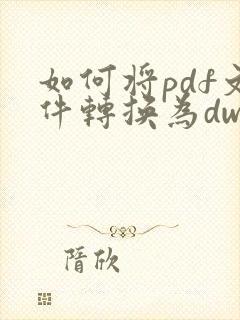 如何将pdf文
件轉換為dw
隋欣